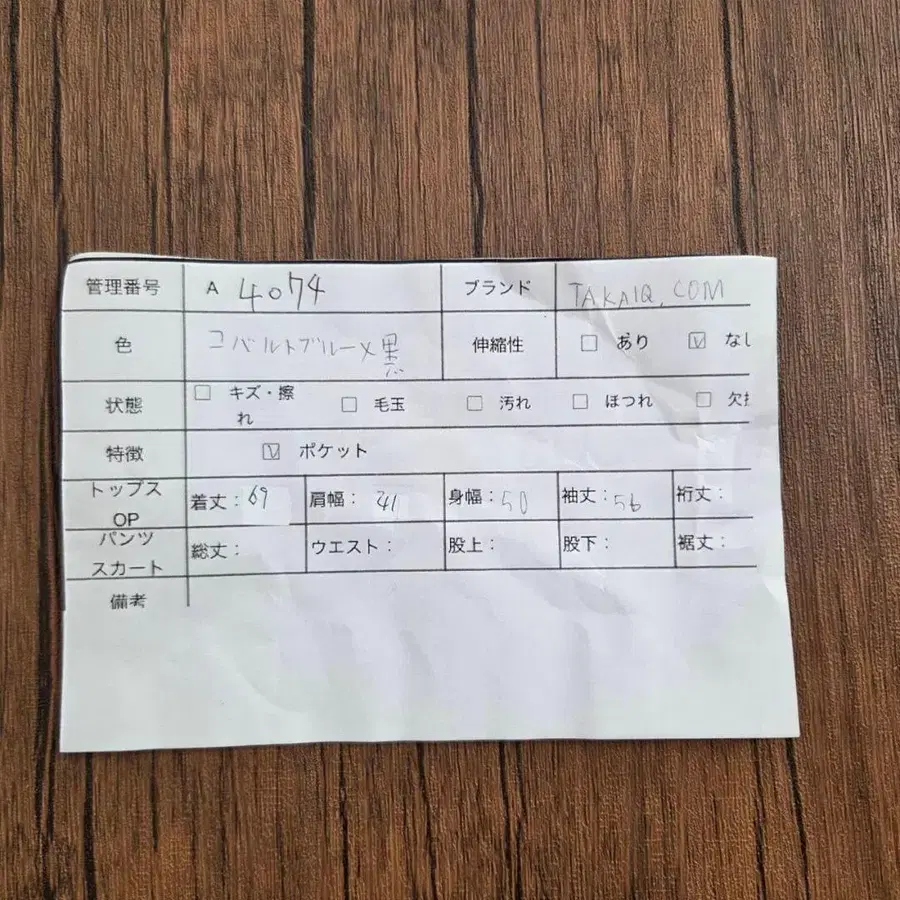 管理番号 A 4074 ブランド TAKAIQ.COM
色 コバルトブルー×黒 伸縮性 □ あり ☑ なし
状態 □ キズ・擦れ □ 毛玉 □ 汚れ □ ほつれ □ 欠
特徴 ☑ ポケット
トップス OP 着丈:69 肩幅:41 身幅:50 袖丈:56 裄丈:
パンツ スカート 総丈: ウエスト: 股上: 股下: 裾丈:
備考